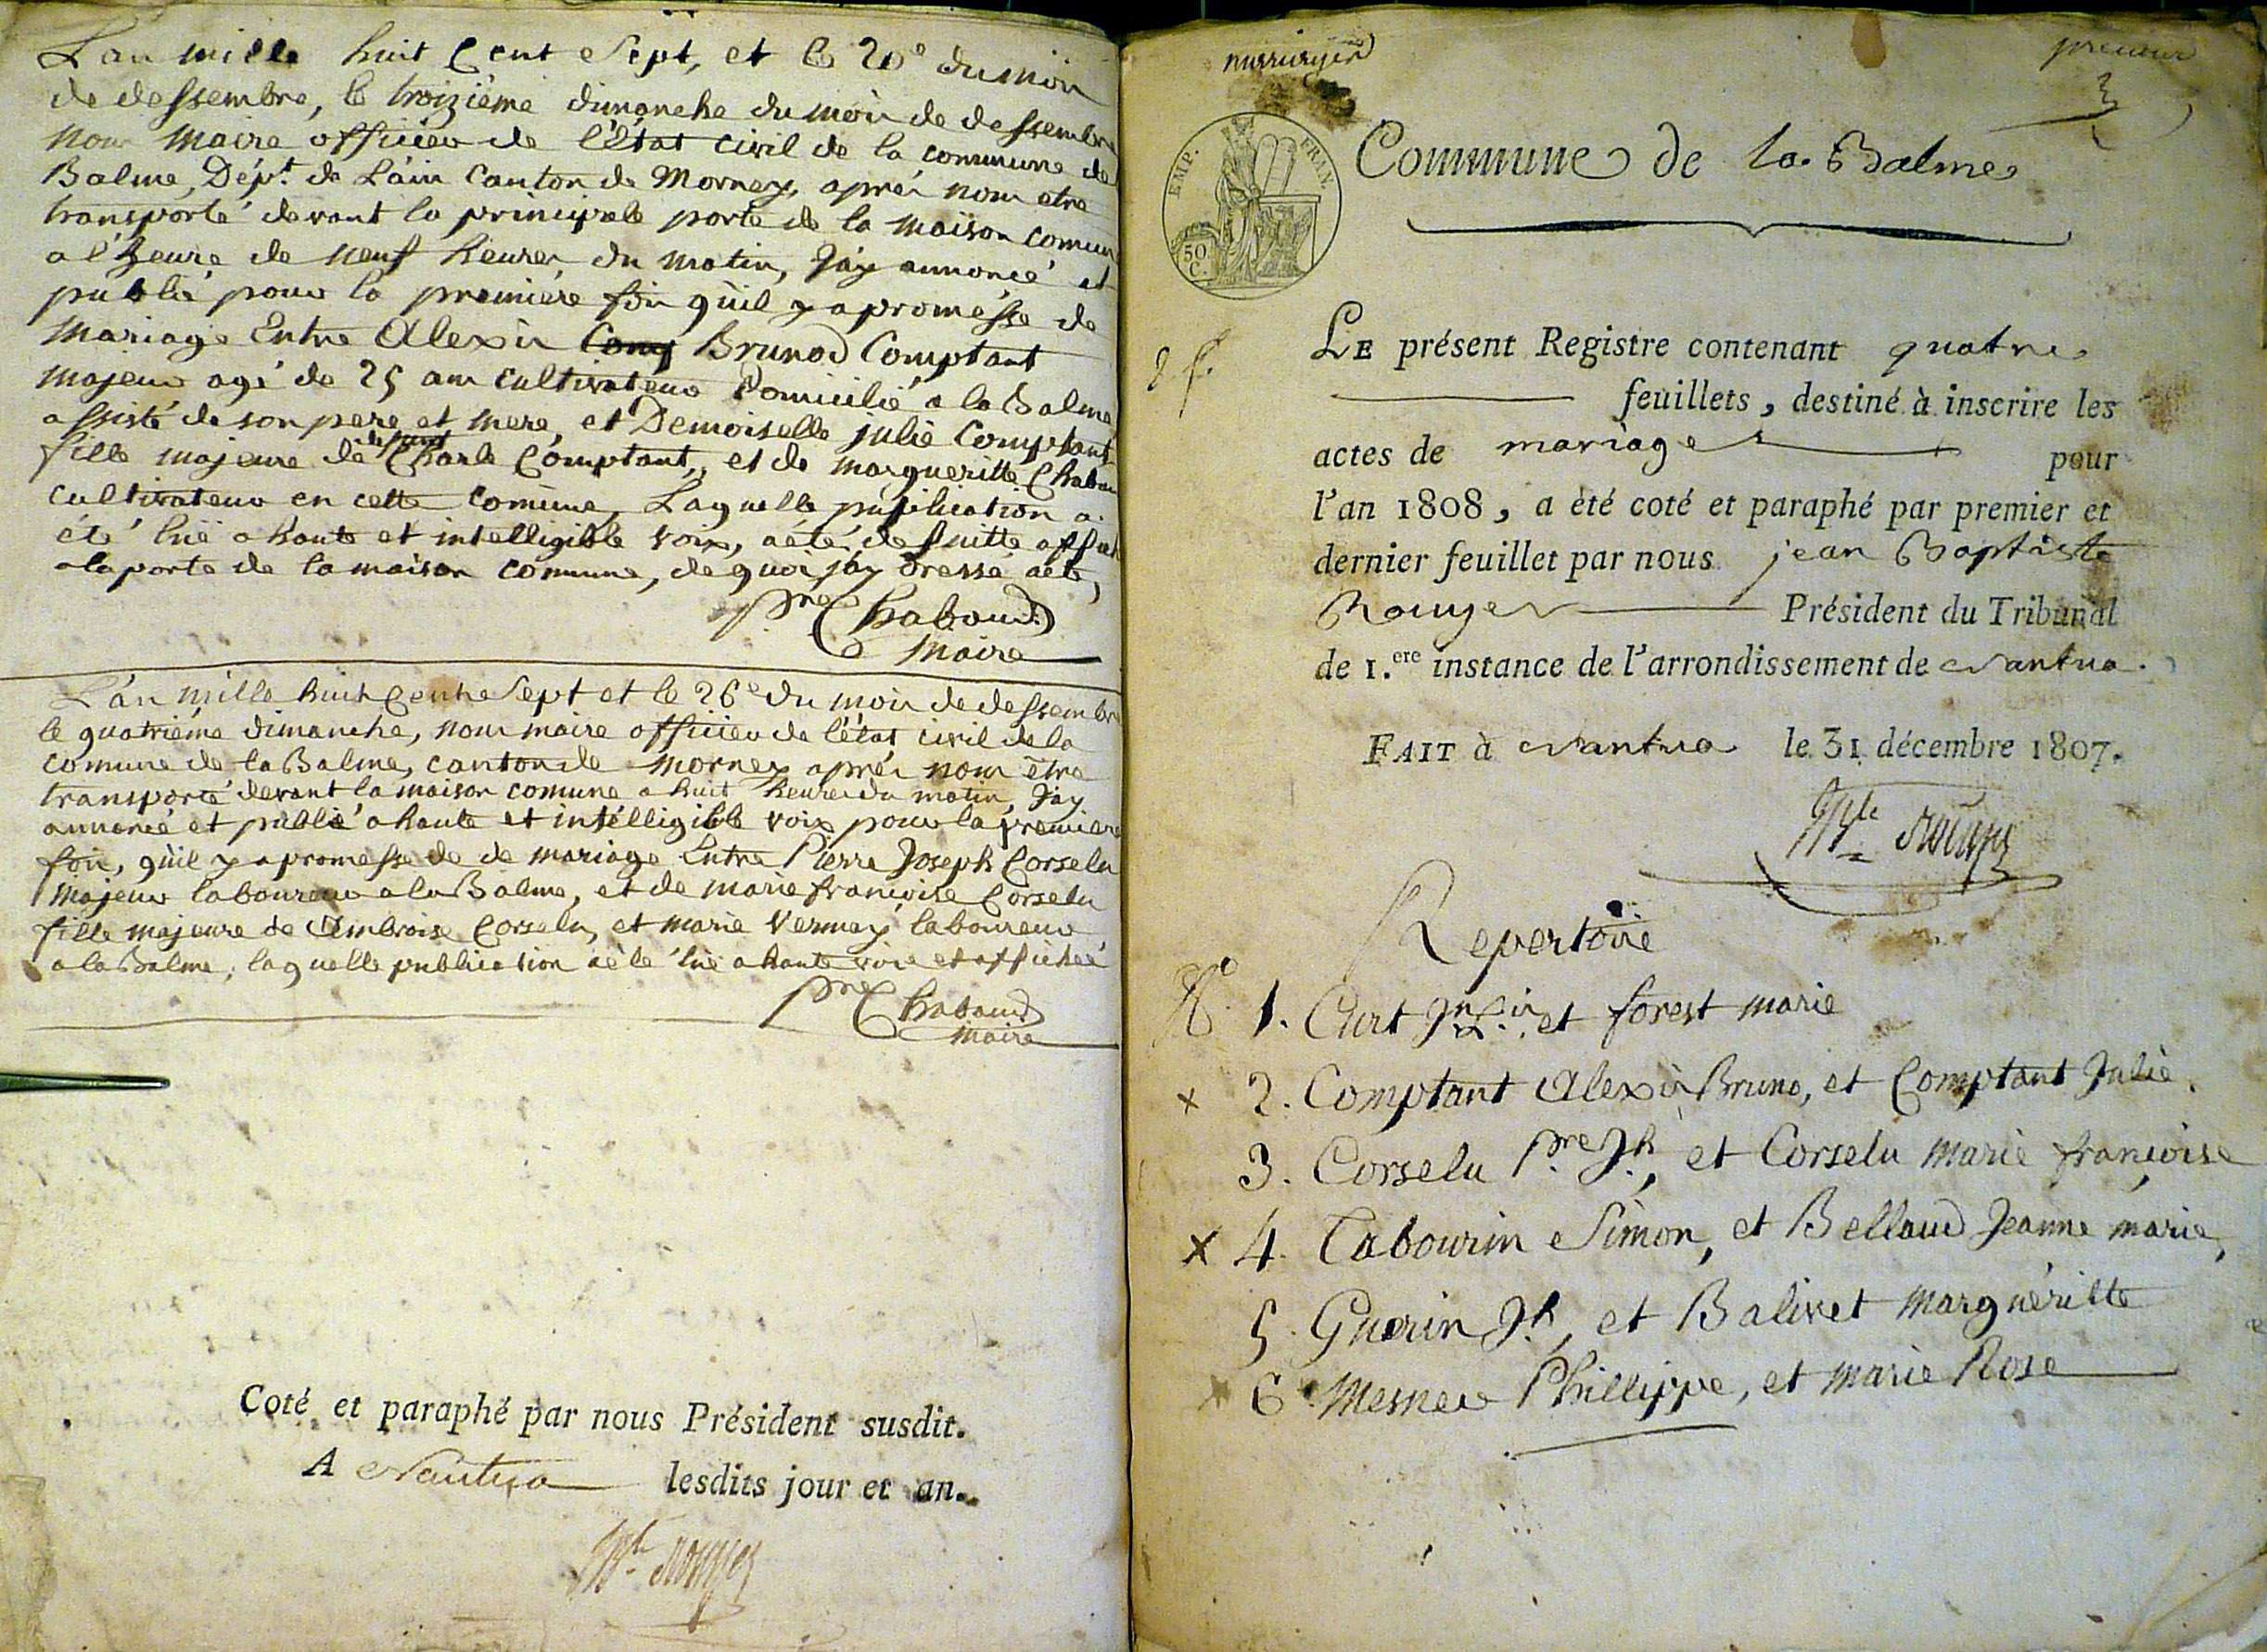 L'an mille huit Cent Sept, et le 20e du moi
de dessembre, le troizième dimanche du moi de dessembre
Nous Maire officier de l'état civil de la commune de
Balme, Dépt. de L'ain Canton de Mornay, après nous etre
transporté devant la principale porte de la maison comun
a l'heure de neuf heures du matin, J'ay annoncé et
publié pour la première foi qu'il y a promesse de
Mariage Entre Alexis Comp Bruno Comptant
majeur agé de 25 ans Cultivateur Domicilié a la Balme
assisté de son pere et mere, et Demoiselle julie Comptant
fille majeure de defunt Charle Comptant, et de margueritte Chabou
Cultivateur en cette Comune, Laquelle publication a
été lüe a haute et intelligible voix, a été de suitte affich
a la porte de la maison Comune, de quoi j'ay dressé acte,
Pre Chaboud
Maire
L'an mille huit Cent Sept et le 26e du moi de dessembre
le quatrième dimanche, nous maire officier de l'état civil de la
comune de la Balme, canton de Mornay après nous être
transporté devant la maison comune a huit heures du matin, J'ay
annoncé et publié a haute et intélligible voix pour la premiere
foi, qu'il y a promesse de de mariage Entre Pierre Joseph Corselu
majeur laboureur a la Balme, et de marie françoise Corselu
fille majeure de Ambroise Corselu, et marie Vernay laboureur
a la Balme, laquelle publication a été lüe a haute voix et affichée
Pre Chaboud
Maire
Coté et paraphé par nous Président susdit.
A Nantua lesdits jour et an.
Bte Rouyer
Commune de la Balme
EMP. FRAN.
50
C.
LE présent Registre contenant quatre
feuillets, destiné à inscrire les
actes de mariage pour
l'an 1808, a été coté et paraphé par premier et
dernier feuillet par nous jean Baptiste
Rouyer Président du Tribunal
de 1.ere instance de l'arrondissement de Nantua.
FAIT à Nantua le 31 décembre 1807.
Bte Rouyer
Repertoire
No 1. Curt et forest marie
x 2. Comptant Alexis Bruno, et Comptant Julie.
3. Corselu Pre Jh, et Corselu marie françoise
x 4. Tabourin Simon, et Bellaud Jeanne marie,
5. Guerin Jh, et Balivet marguéritte
x 6. Mesner Phillippe, et marie Rose